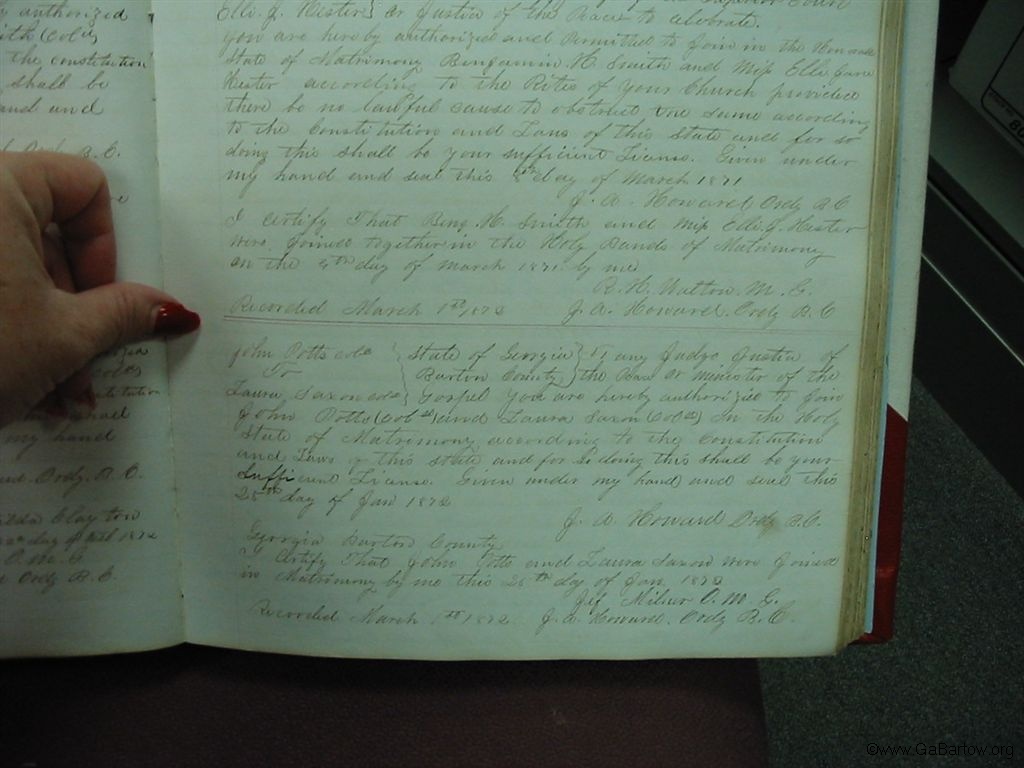 y authorized
ith Col d
the constitution
shall be
and and
Ordy B.C.
Superior Court
Elle. J. Hester } or Justice of the Peace to celebrate.
you are hereby authorized and Permitted to join in the Honorable
State of Matrimony Benjamin H. Smith and Miss Elle Jane
Hester according to the Rites of your Church provided
there be no lawful cause to obstruct the same according
to the Constitution and Laws of this state and for so
doing this shall be your sufficient License. Given under
my hand and seal this day of March 1871
J. A. Howard Ordy B C
I certify That Benj. H. Smith and Miss Elle. J. Hester
were joined together in the Holy Bands of Matrimony
on the day of March 1871 by me
R. H. Walton M. G.
Recorded March 1st 1872 J. A. Howard. Ordy B. C
John Potts cold { State of Georgia } To any Judge Justice of
To Bartow County } the Peace or Minister of the
Laura Saxon cold Gospel You are hereby authorized to join
John Potts (Cold) and Laura Saxon (Cold) In the Holy
State of Matrimony according to the Constitution
and Laws of this state and for so doing this shall be your
Sufficient License. Given under my hand and seal this
25th day of Jan 1872
J. A. Howard Ordy B.C.
Georgia Bartow County
I Certify That John Potts and Laura Saxon were joined
in Matrimony by me this 25th day of Jan. 1872
Jef Milner O. M. G.
Recorded March 1st 1872 J. A. Howard. Ordy B. C.
stitution
shall
my hand
Ordy. B. C.
Clayton
day of 1872
O. M. G.
Ordy B.C.
©www.GaBartow.org